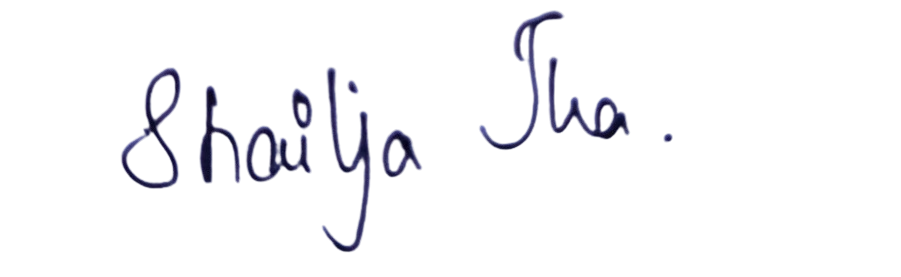 Shailja Jha.